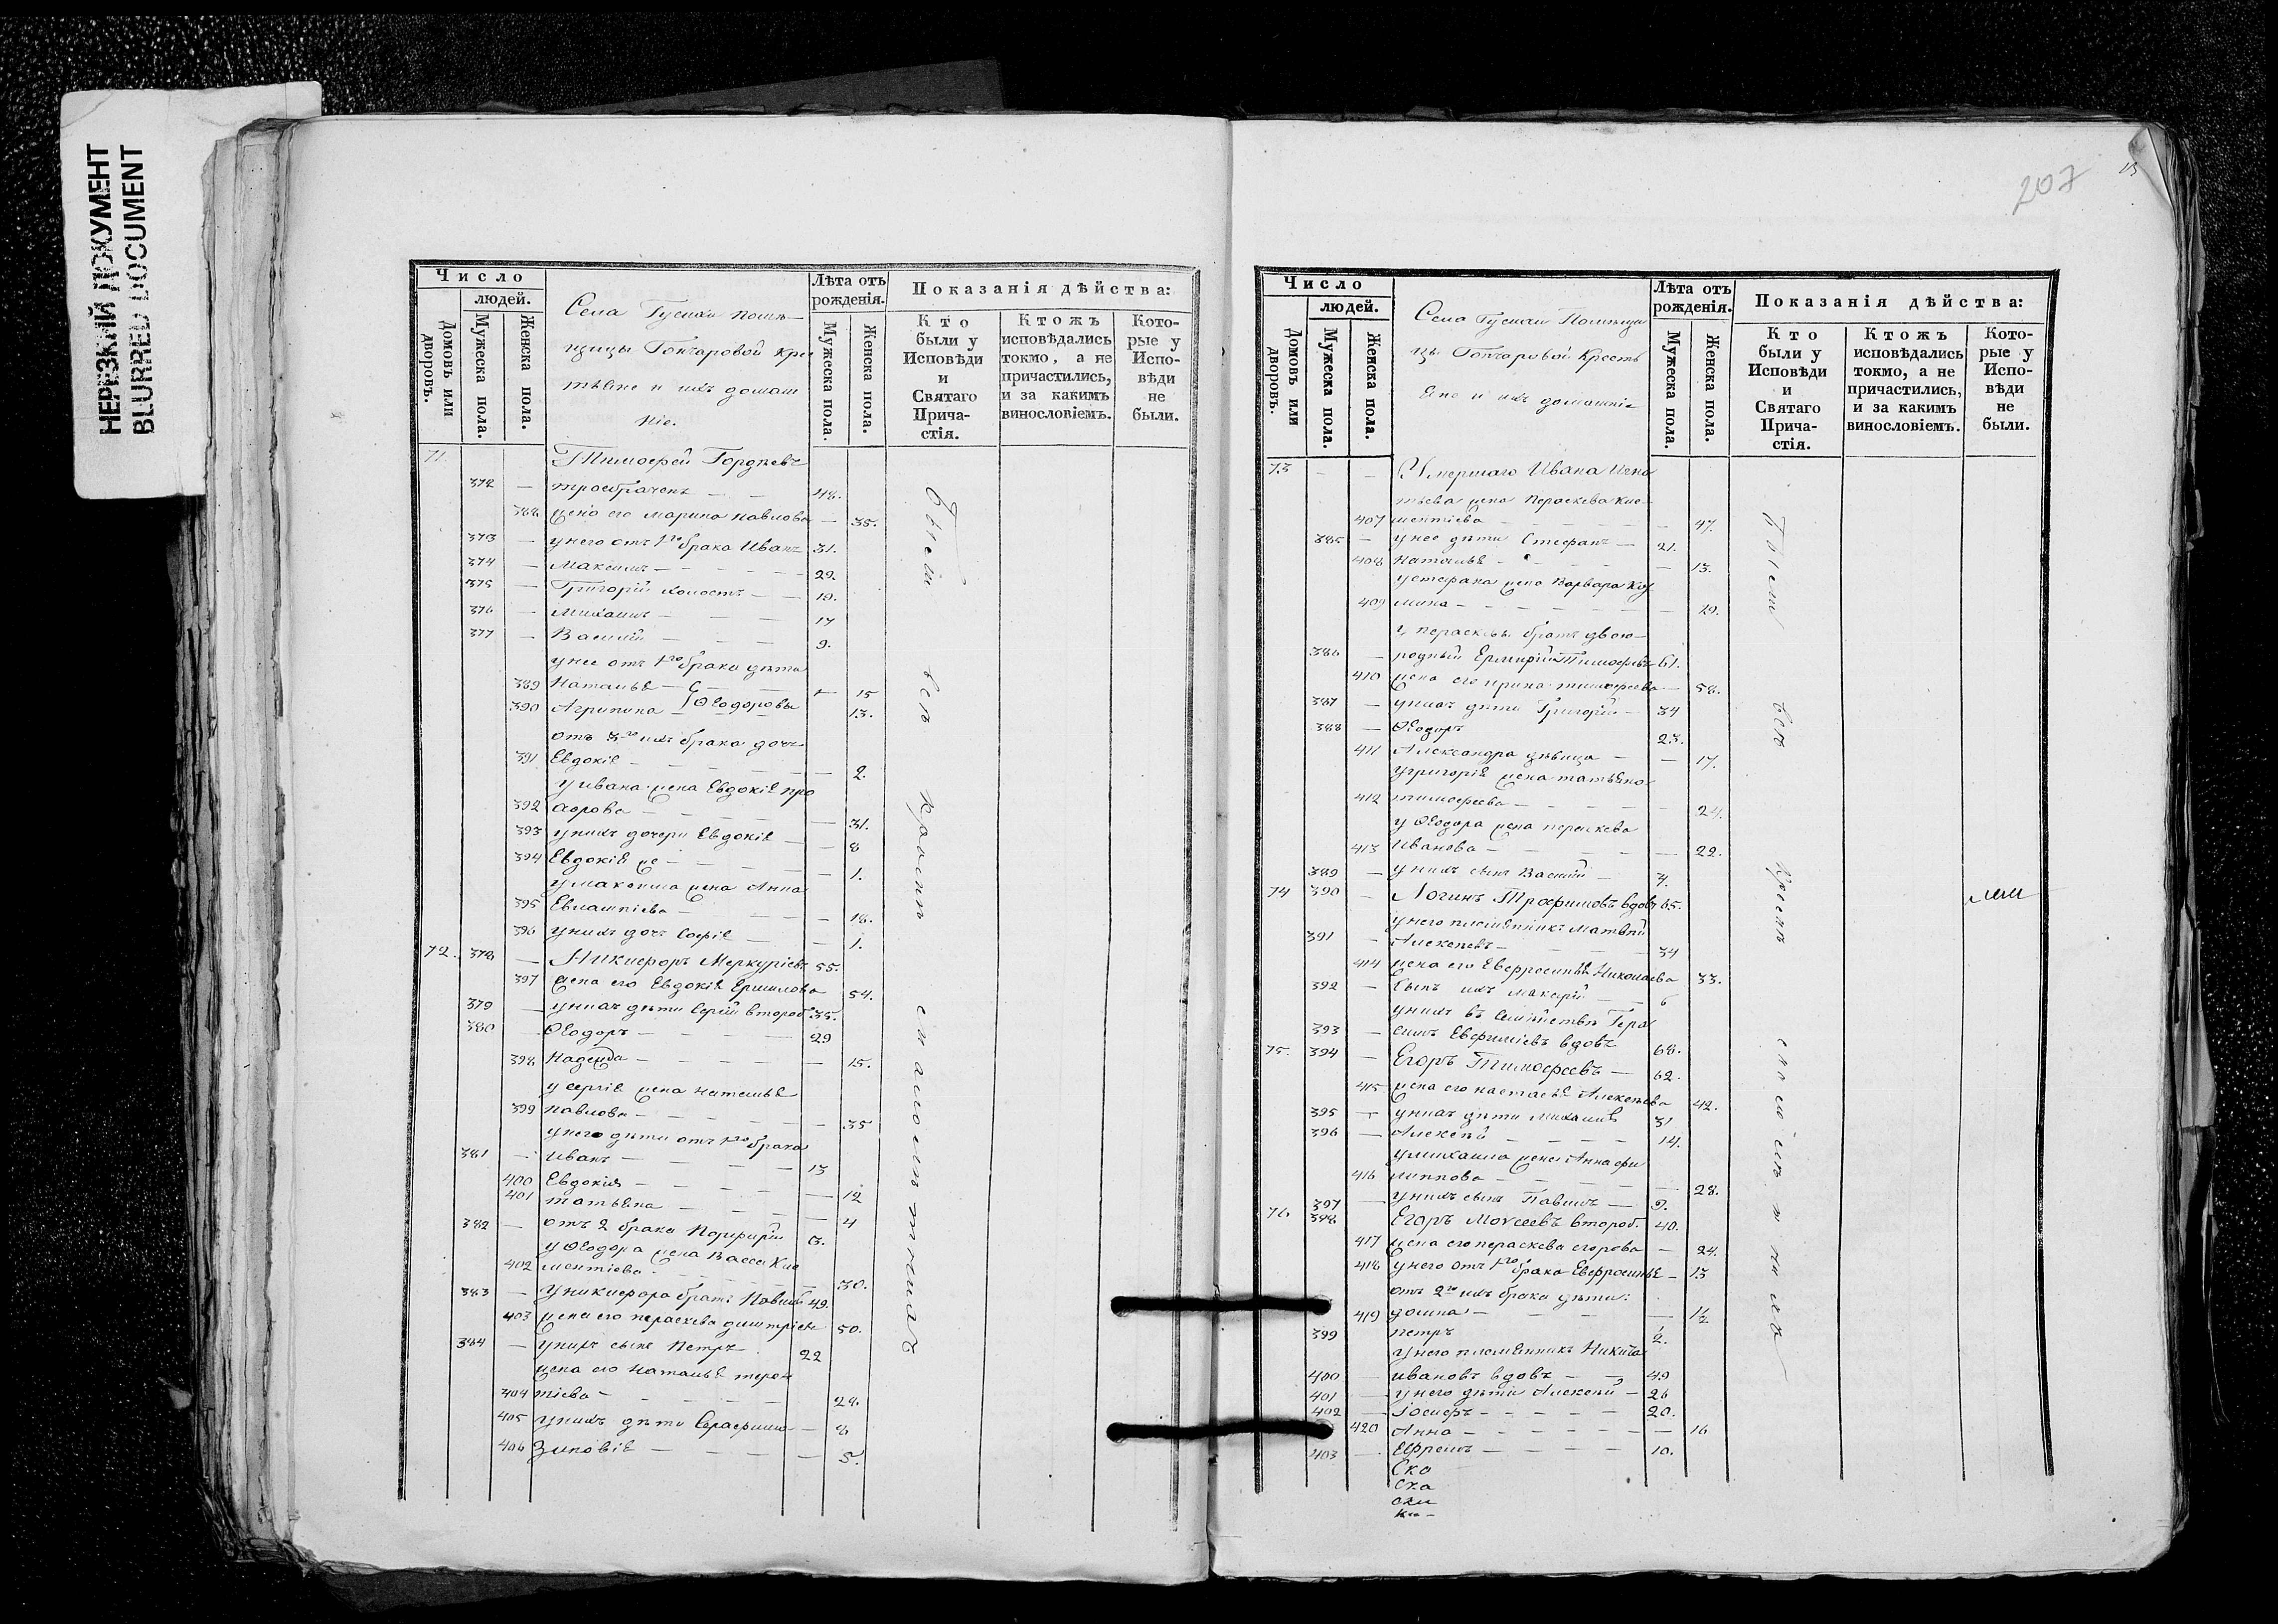 НЕРЕЗКИЙ ДОКУМЕНТ
BLURRED DOCUMENT
Число
людей.
Домовъ или дворовъ.
Мужеска пола.
Женска пола.
Села Гуськи помѣ-
щицы Гончаровой крес
тьяне и ихъ домаш
ніе.
Лѣта отъ рожденія.
Мужеска пола.
Женска пола.
Показанія дѣйства:
Кто были у Исповѣди и Святаго Причастія.
Ктожъ исповѣдались токмо, а не причастились, и за какимъ винословіемъ.
Которые у Исповѣди не были.
71. Тимофей Гордѣевъ
372 — троебраченъ — — 48.
388 жена его Марина Павлова — 35.
373 — у него отъ 1го брака Иванъ 31.
374 — Максимъ — — — 22.
375 — Григорій холостъ — — 19.
376 — Михаилъ — — — 17
377 — Василій — — — 9.
у нее отъ 1го брака дѣти
389 Наталья — — 15
390 Агрипина — Ѳеодоровы 13.
отъ 3го ихъ брака дочь
391 Евдокія — — — 2.
у Ивана жена Евдокія Про
392 — — — 31.
393 у нихъ дочери Евдокія — — 8
394 Евдокія же — — — 1.
у Максима жена Анна
395 — — — 18.
396 у нихъ дочь Софія — — 1.
72. 378 — Никифоръ Меркуріевъ 55.
397 жена его Евдокія Ермилова 54.
379 — у нихъ дѣти Сергій второб. 35.
380 — Ѳеодоръ — — — 29
398 Надежда — — — 15.
у Сергія жена Наталья
399 Павлова — — — 35
у него дѣти отъ 1го брака
381 — Иванъ — — — 13
400 Евдокия — — — 12
401 Татьяна — — — 4
382 — отъ 2 брака Порфирій 3.
у Ѳеодора жена Васса Кле
402 ментіева — — — 30.
383 — у Никифора братъ Павелъ 49.
403 жена его Параскева Дмитріева 50.
384 — у нихъ сынъ Петръ — 22
жена его Наталья Терен
404 тіева — — — 28.
405 у нихъ дѣти — 8
406 Зиновія — — — 5.
всѣ
207
Число
людей.
Домовъ или дворовъ.
Мужеска пола.
Женска пола.
Села Гуськи Помѣщи
цы Гончаровой Кресть
яне и ихъ домашніе
Лѣта отъ рожденія.
Мужеска пола.
Женска пола.
Показанія дѣйства:
Кто были у Исповѣди и Святаго Причастія.
Ктожъ исповѣдались токмо, а не причастились, и за какимъ винословіемъ.
Которые у Исповѣди не были.
73 — — Умершаго Ивана Игна
тьева жена Параскева Кле-
407 ментіева — — — 47.
385 — у нее дѣти Стефанъ — 21.
408 Наталья — — — 13.
у Стефана жена Варвара Коз
409 мина — — — 19.
у Параскевы братъ двою-
386 — родный Тимофеевъ 61.
410 жена его Ирина Тимофеева — 58.
387 — у нихъ дѣти Григорій — 34
388 — Ѳеодоръ 23.
411 Александра дѣвица — — 17.
у Григорія жена Татьяна
412 Тимофеева — — — 24.
у Ѳеодора жена Параскева
413 Иванова — — — 22.
389 — у нихъ сынъ Василій —
74 390 — Логинъ Трофимовъ вдовъ 65.
у него племянникъ Матвѣй
391 — Алексеевъ — — 34
414 жена его Евфросинья Николаева 33.
392 — Сынъ ихъ — — 6
у нихъ въ семействѣ Гера
393 — симъ Евфиміевъ вдовъ 68.
75. 394 — Егоръ Тимофеевъ — 62.
415 жена его Настасья Алексѣева 42.
395 — у нихъ дѣти Михаилъ 31
396 — Алексѣй — — — 14.
у Михаила жена Анна Фи
416 липпова — — — 28.
397 — у нихъ сынъ Павелъ — 9.
76 398 Егоръ Моѵсеевъ второб. 40.
417 жена его Параскева Егорова — 24.
418 у него отъ 1го брака Евфросинья — 13
отъ 2го ихъ брака дѣти:
419 Домна — — — 1½
399 Петръ ½.
у него племянникъ Никита
400 — Ивановъ вдовъ — — 49
401 — у него дѣти Алексѣй — 26
402 — Іосифъ — — — 20.
420 Анна — — — 16
403 — Ефремъ — — — 10.
всѣ